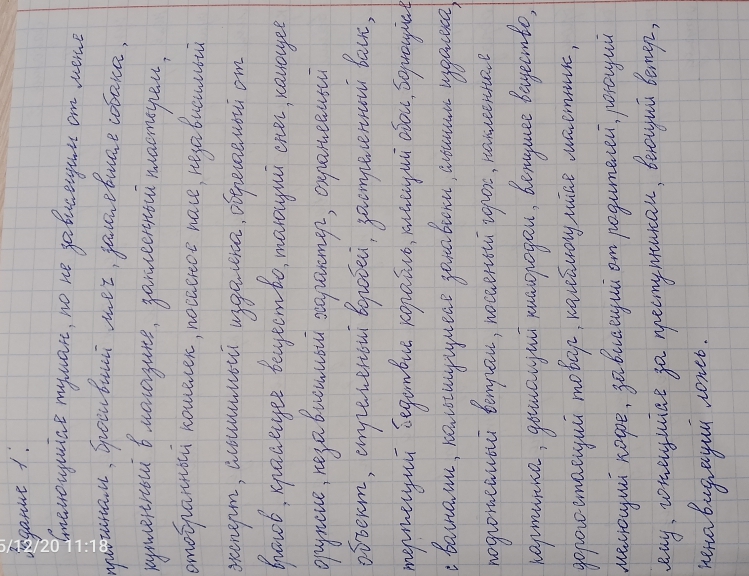 Задание 1.
стелющийся туман, по не зависящим от меня
причинам, бросивший мяч, залаявшая собака,
купленный в магазине, заклеенный пластырем,
отобранный кошелек, посеяное поле, независимый
эксперт, слышимый издалека, оберегаемый от
врагов, красящее вещество, тающий снег, колющее
оружие, независимый характер, охраняемый
объект, стреляный воробей, застреленный волк,
терпящий бедствие корабль, клеящий обои, борющийся
с волнами, колышущиеся занавески, слышим издалека,
подгоняемый ветром, посланый порох, наклеенная
картинка, дышащий кислородом, вяжущее вещество,
дорогостоящий товар, колеблющийся маятник,
мелющий кофе, зависящий от родителей, роющий
яму, гонящийся за преступником, веющий ветер,
ненавидящий ложь.
5/12/20 11:18